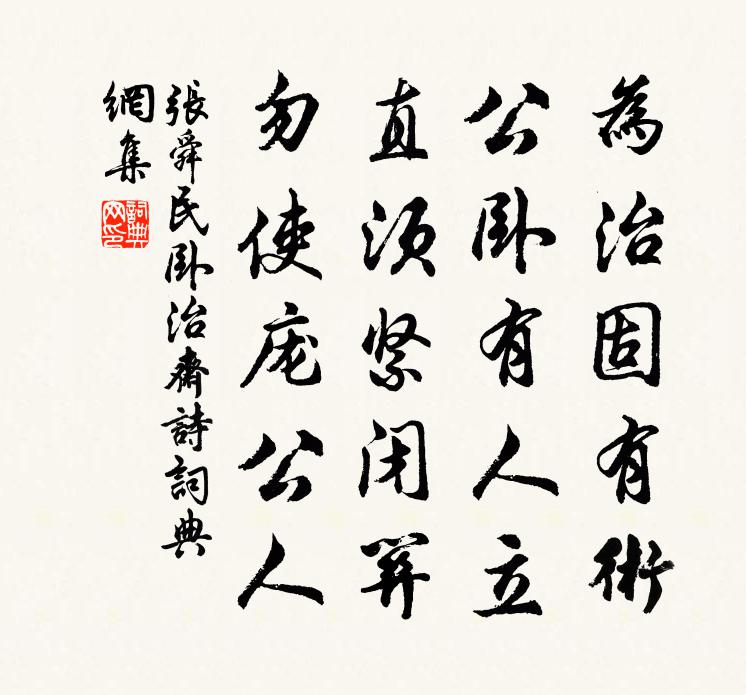 為治固有術
公卧有人立
直須紧闭關
勿使庞公人
張舜民卧治齋詩詞典
網集
詞典
网印